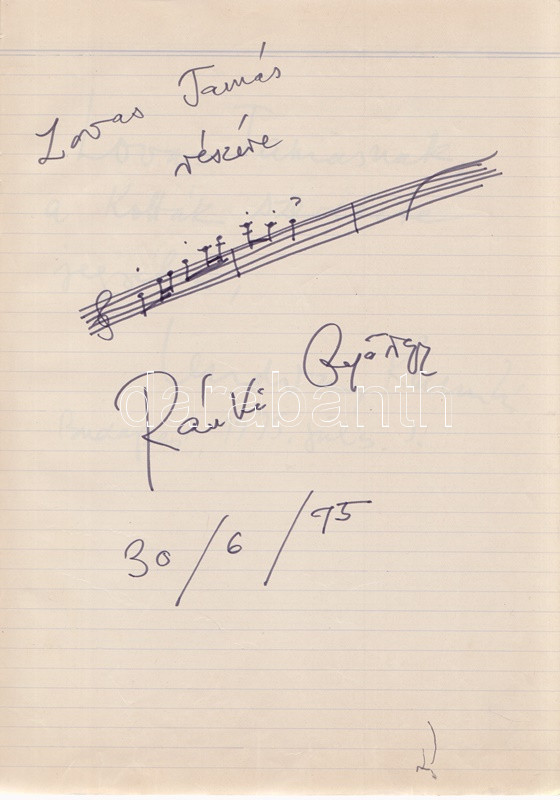 Lovas Tamás
részére
Ránki György
darabanth
30/6/75